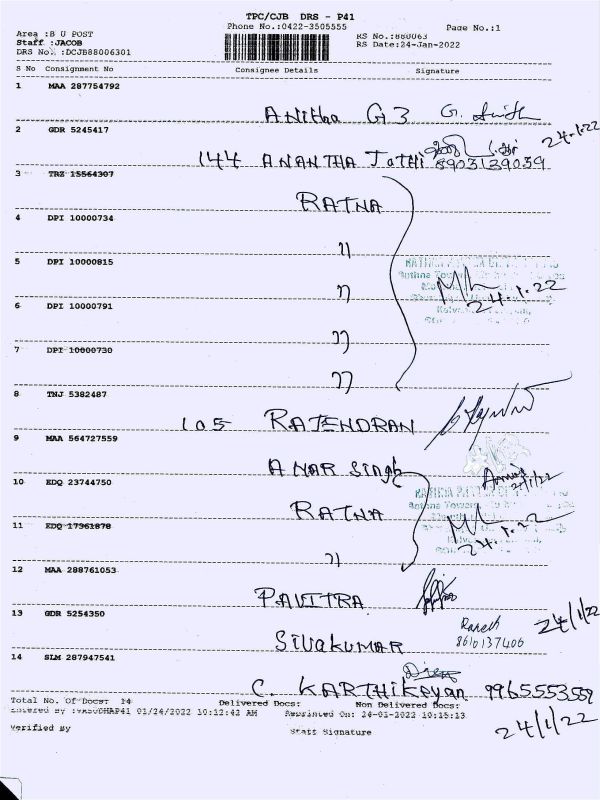 TPC/CJB DRS - P41
Phone No.:0422-3505555
Page No.:1
Area :B U POST
Staff :JACOB
DRS No. :DCJB88006301
RS No.:880063
RS Date:24-Jan-2022
S No Consignment No Consignee Details Signature
1 MAA 287754792
Anitha G 3
2 GDR 5245417
24-1-22
144 ANANTHA JOTHI 8903139039
3 TRZ 15564307
RATNA
4 DPI 10000734
״
5 DPI 10000815
״
24.1.22
6 DPI 10000791
״
7 DPI 10000730
״
8 TNJ 5382487
105 RAJENDRAN
9 MAA 564727559
ANAR Singh
10 EDQ 23744750
RATNA
11 EDQ 17361878
24.1.22
״
12 MAA 288761053
PAVITRA
13 GDR 5254350
24/1/22
SIVAKUMAR 8610137406
14 SLM 287947541
C. KARTHIKEYAN 9965553559
Total No. Of Docs: 14 Delivered Docs: Non Delivered Docs:
01/24/2022 10:12:42 AM Reprinted On: 24-01-2022 10:15:13
24/1/22
Verified By Staff Signature